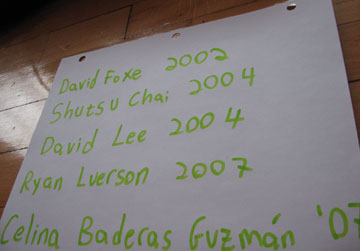 David Foxe 2002
Shutsu Chai 2004
David Lee 2004
Ryan Luerson 2007
Celina Baderas Guzmán '07